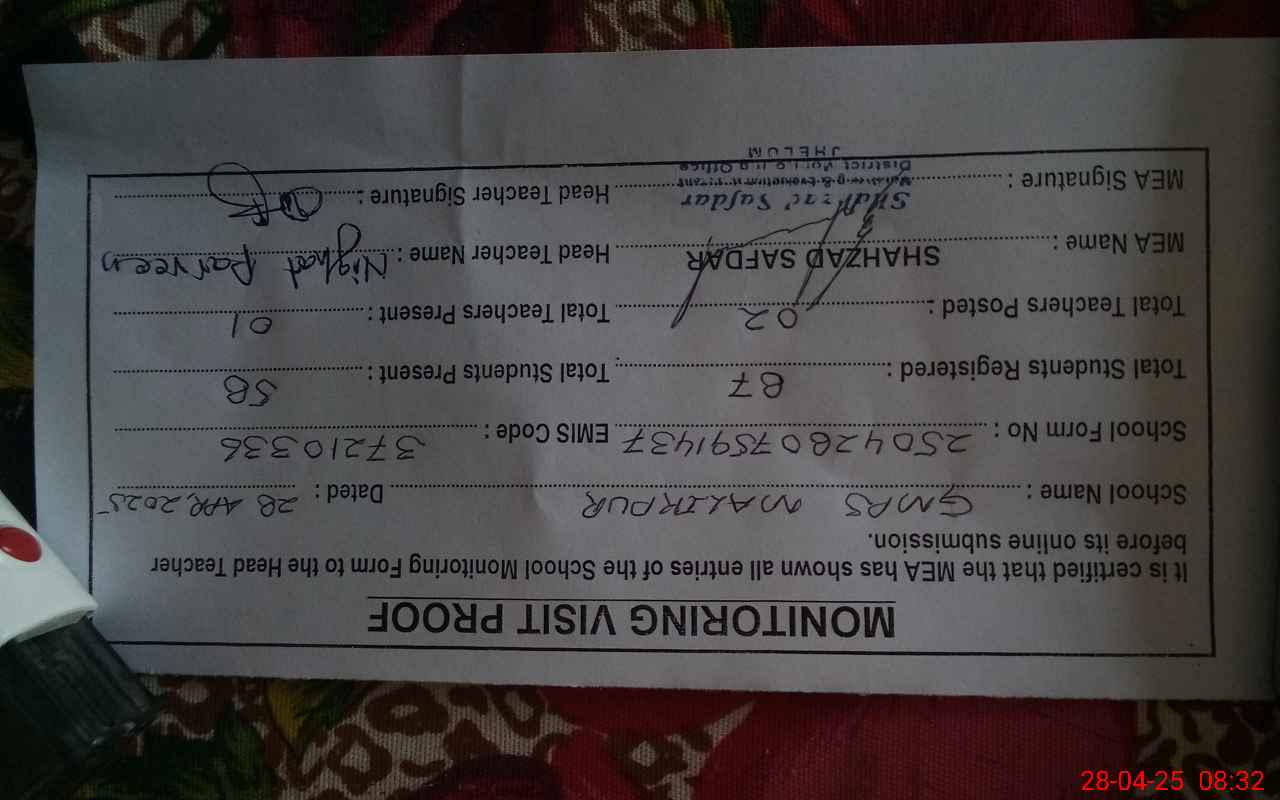 MONITORING VISIT PROOF
It is certified that the MEA has shown all entries of the School Monitoring Form to the Head Teacher
before its online submission.
School Name : GMPS MALIKPUR Dated : 28 APR, 2025
School Form No : 25042807591437 EMIS Code : 37210336
Total Students Registered : 87 Total Students Present : 58
Total Teachers Posted : 02 Total Teachers Present : 01
MEA Name : SHAHZAD SAFDAR Head Teacher Name : Nighat Parveen
MEA Signature : Head Teacher Signature :
Safdar
District Monitoring Office
JHELUM
28-04-25 08:32